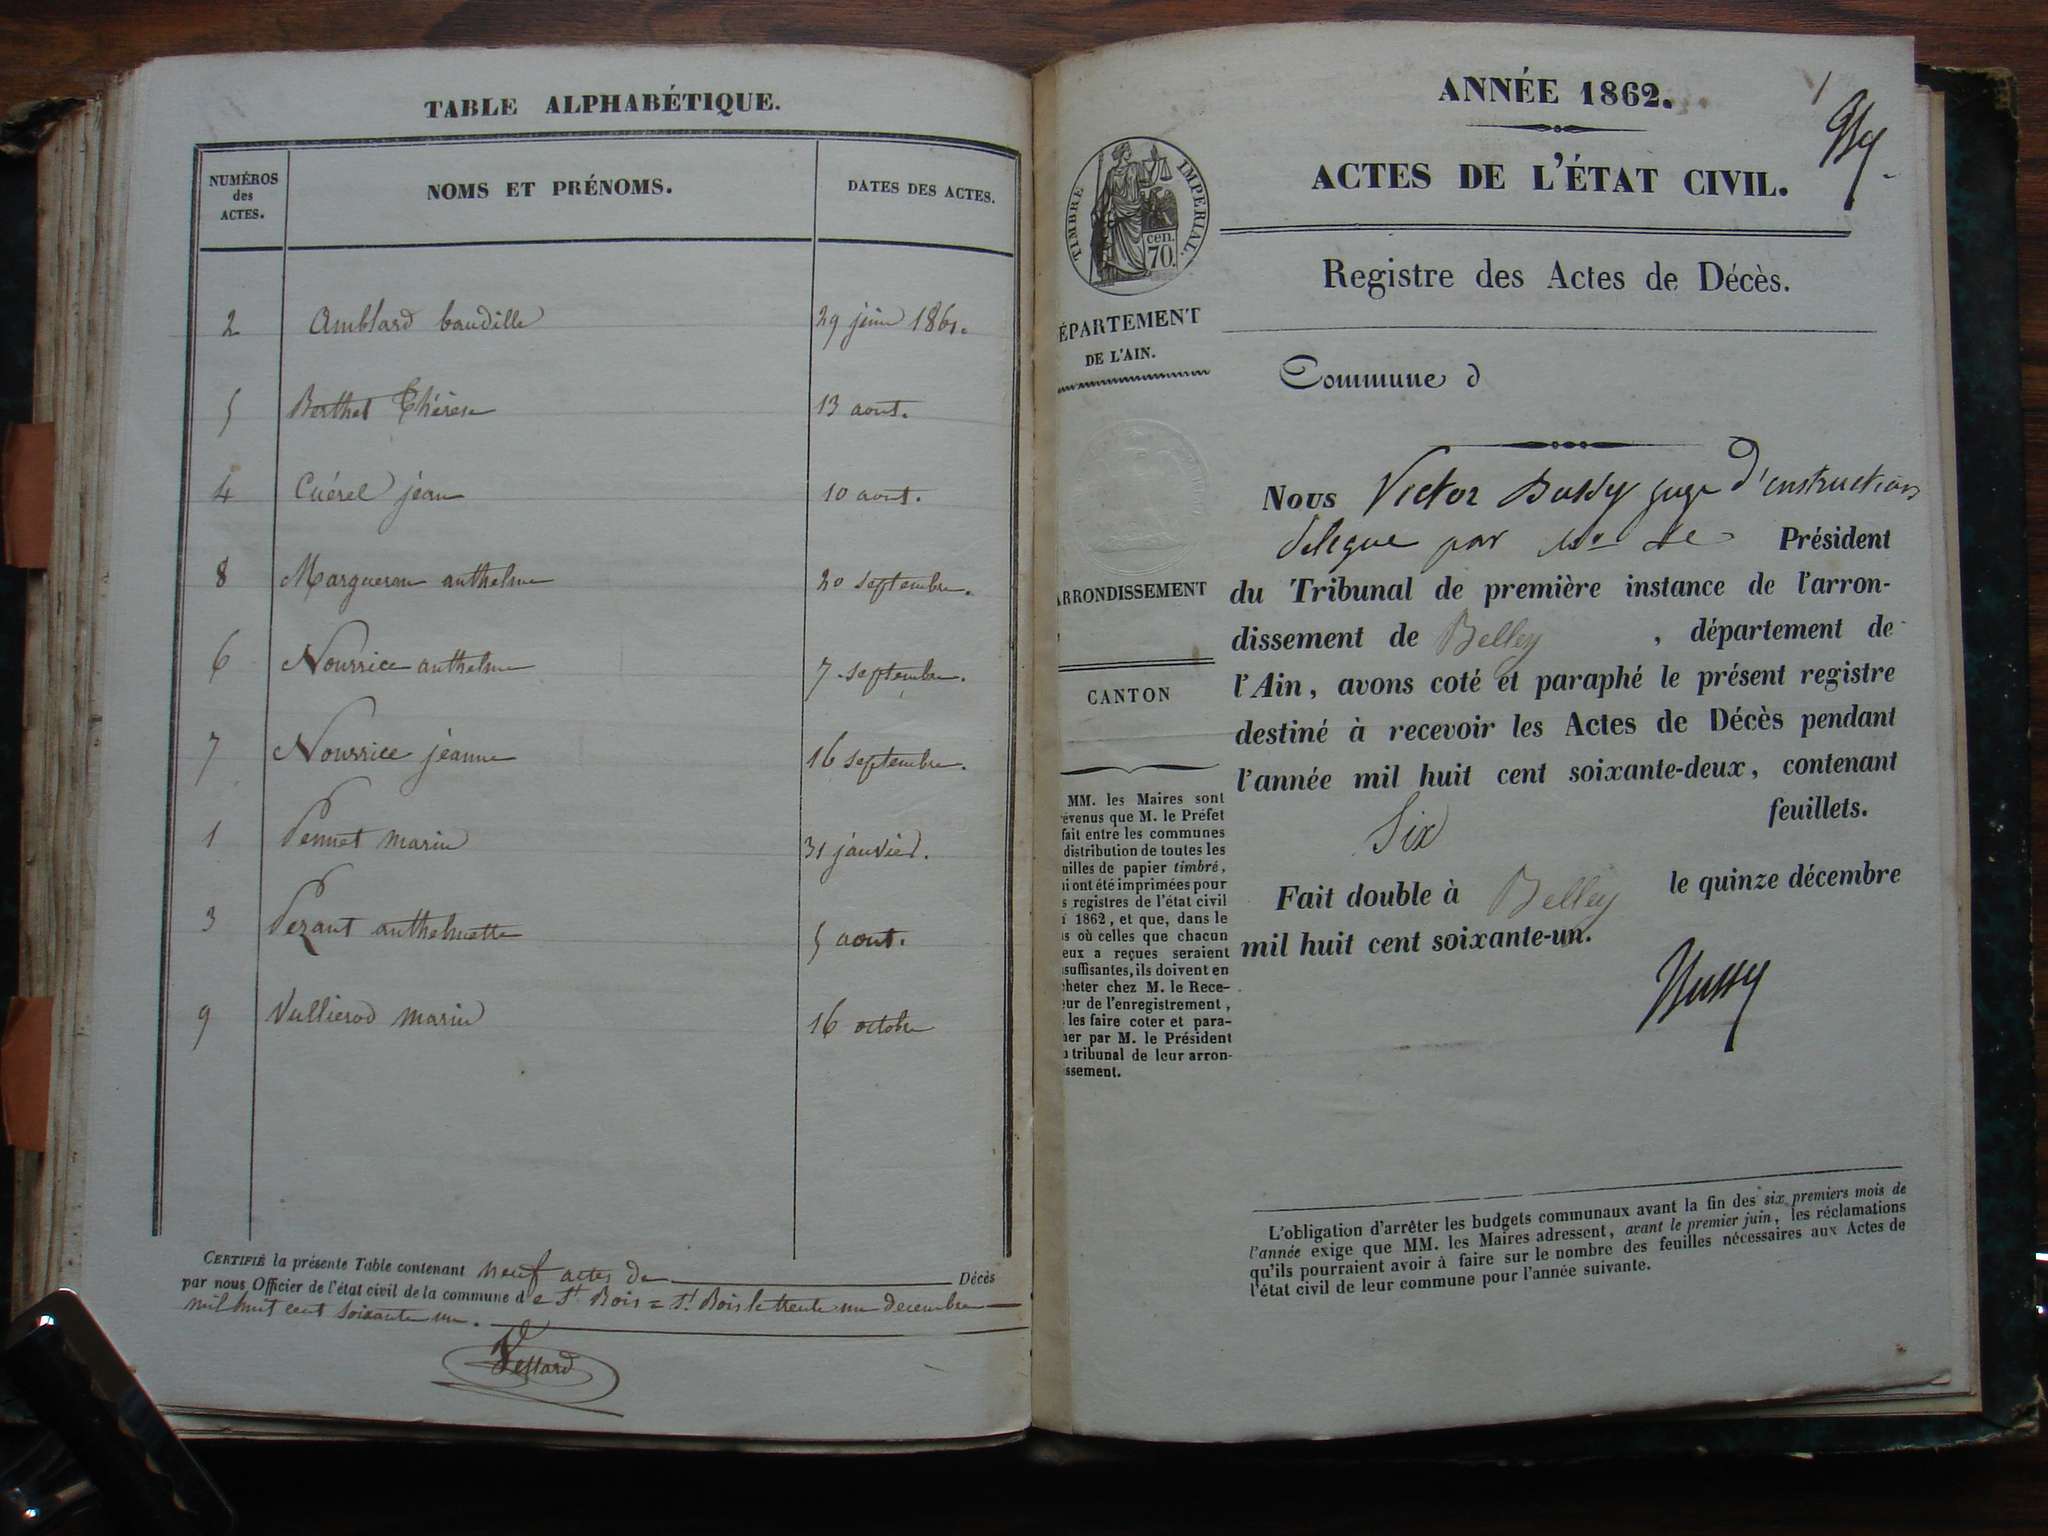 TABLE ALPHABÉTIQUE.
NUMÉROS des ACTES. NOMS ET PRÉNOMS. DATES DES ACTES.
2 Amblard baudille 29 juin 1861.
5 Berthet Thérèse 13 aout.
4 Cuérel jean 10 aout.
8 Margueron anthelme 20 septembre.
6 Nourrice anthelme 7 septembre.
7 Nourrice jeanne 16 septembre.
1 Pennet marin 31 janvier.
3 Pezant anthelmette 5 aout.
9 Vullierod marin 16 octobre
CERTIFIÉ la présente Table contenant neuf actes de Décès
par nous Officier de l'état civil de la commune de St Bois = St Bois le trente un decembre
mil huit cent soixante un.
ANNÉE 1862.
1
ACTES DE L'ÉTAT CIVIL.
TIMBRE IMPERIAL.
cen.
70.
Registre des Actes de Décès.
ÉPARTEMENT
DE L'AIN.
Commune d
Nous Victor Bussy juge d'instruction
délégué par Mr le Président
du Tribunal de première instance de l'arron-
dissement de Belley, département de
l'Ain, avons coté et paraphé le présent registre
destiné à recevoir les Actes de Décès pendant
l'année mil huit cent soixante-deux, contenant
Six feuillets.
Fait double à Belley le quinze décembre
mil huit cent soixante-un.
Bussy
ARRONDISSEMENT
CANTON
MM. les Maires sont
évenus que M. le Préfet
fait entre les communes
distribution de toutes les
uilles de papier timbré,
i ont été imprimées pour
s registres de l'état civil
1862, et que, dans le
s où celles que chacun
eux a reçues seraient
suffisantes, ils doivent en
cheter chez M. le Rece-
eur de l'enregistrement,
les faire coter et para-
her par M. le Président
u tribunal de leur arron-
issement.
L'obligation d'arrêter les budgets communaux avant la fin des six premiers mois de
l'année exige que MM. les Maires adressent, avant le premier juin, les réclamations
qu'ils pourraient avoir à faire sur le nombre des feuilles nécessaires aux Actes de
l'état civil de leur commune pour l'année suivante.